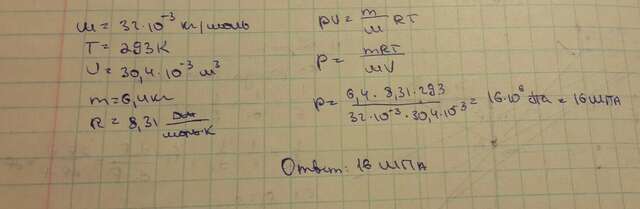 M = 32·10⁻³ кг/моль
T = 293K
V = 30,4·10⁻³ м³
m = 6,4кг
R = 8,31 Дж/моль·К
PV = m/M RT
P = mRT/MV
P = 6,4·8,31·293/32·10⁻³·30,4·10⁻³ = 16·10⁶ Па = 16МПА
Ответ: 16 МПА